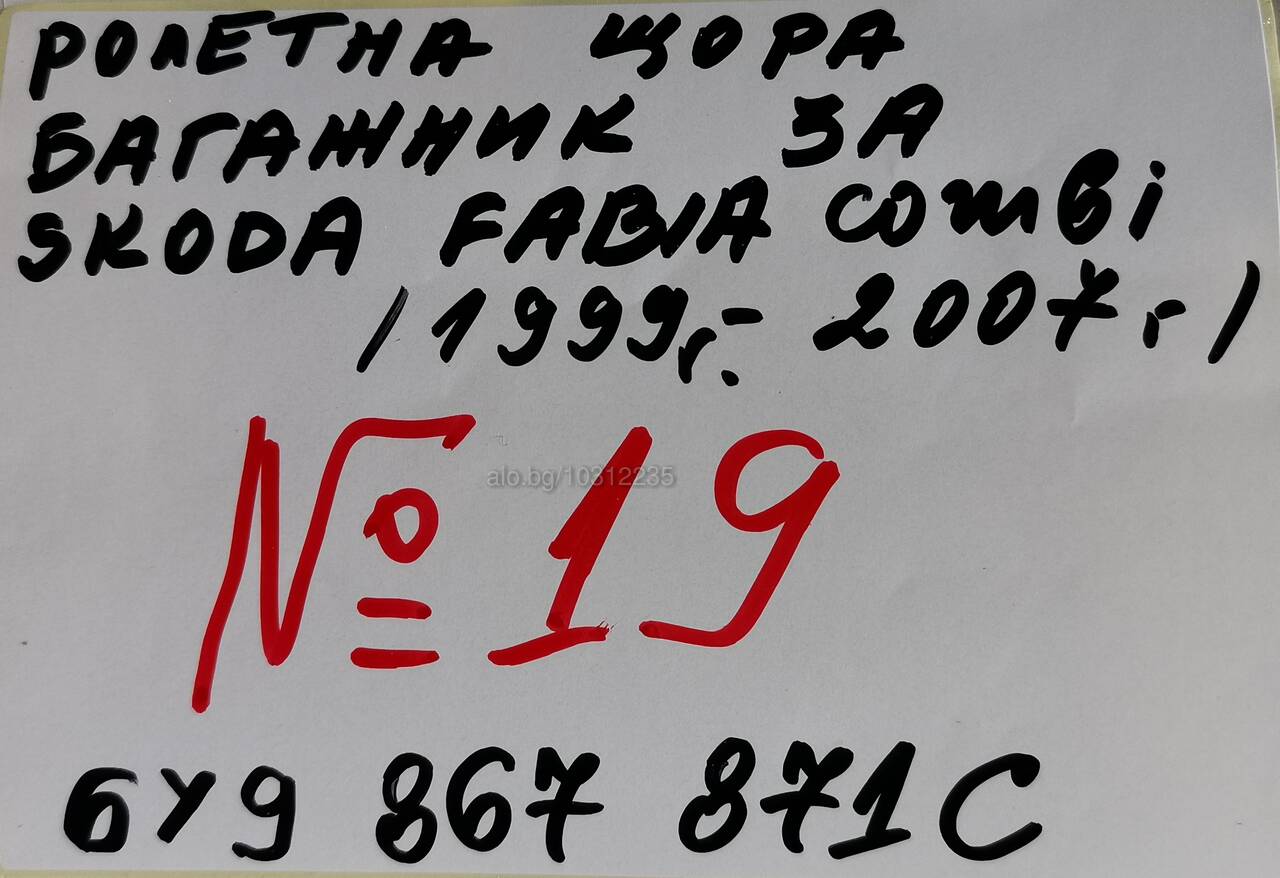 РОЛЕТНА ЩОРА
БАГАЖНИК ЗА
SKODA FABIA combi
/1999г.- 2007г/
alo.bg/10312235
№ 19
6Y9 867 871C